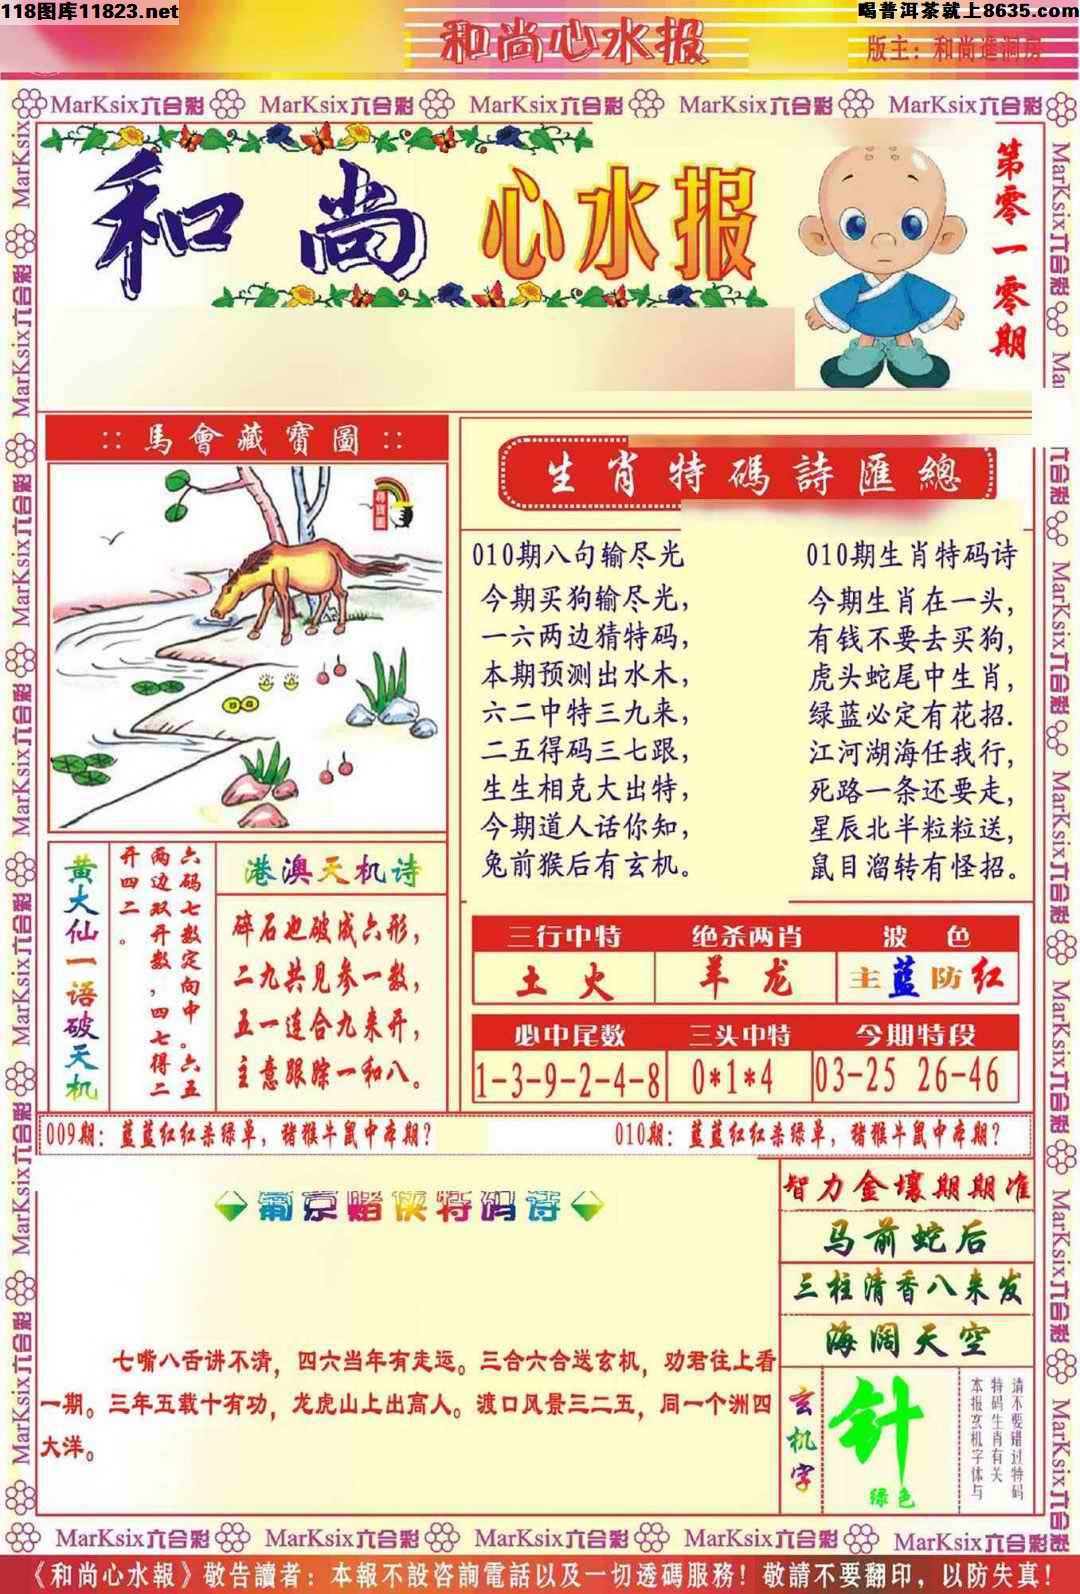 118图库11823.net
喝普洱茶就上8635.com
和尚心水报
版主：和尚進洞房
MarKsix六合彩 MarKsix六合彩 MarKsix六合彩 MarKsix六合彩 MarKsix六合彩
和尚心水报
第零一零期
:: 馬會藏寶圖 ::
尋寶圖
生肖特碼詩匯總
010期八句输尽光
今期买狗输尽光，
一六两边猜特码，
本期预测出水木，
六二中特三九来，
二五得码三七跟，
生生相克大出特，
今期道人话你知，
兔前猴后有玄机。
010期生肖特码诗
今期生肖在一头，
有钱不要去买狗，
虎头蛇尾中生肖，
绿蓝必定有花招.
江河湖海任我行，
死路一条还要走，
星辰北半粒粒送，
鼠目溜转有怪招。
黄大仙一语破天机
六码七数定向中。六五
两边双开数，四七得二
开四二。
港澳天机诗
碎石也破成六形，
二九共见参一数，
五一连合九来开，
主意跟踪一和八。
三行中特 绝杀两肖 波色
土火 羊龙 主蓝防红
必中尾数 三头中特 今期特段
1-3-9-2-4-8 0*1*4 03-25 26-46
009期：蓝蓝红红杀绿单，猪猴牛鼠中本期？
010期：蓝蓝红红杀绿单，猪猴牛鼠中本期？
葡京赌侠特码诗
七嘴八舌讲不清，四六当年有走远。三合六合送玄机，劝君往上看
一期。三年五载十有功，龙虎山上出高人。渡口风景三二五，同一个洲四
大洋。
智力金壤期期准
马前蛇后
三柱清香八来发
海阔天空
玄机字
针
绿色
请不要错过特码
特码生肖有关
本报玄机字体与
MarKsix六合彩 MarKsix六合彩 MarKsix六合彩 MarKsix六合彩 MarKsix六合彩
《和尚心水報》敬告讀者：本報不設咨詢電話以及一切透碼服務！敬請不要翻印，以防失真！